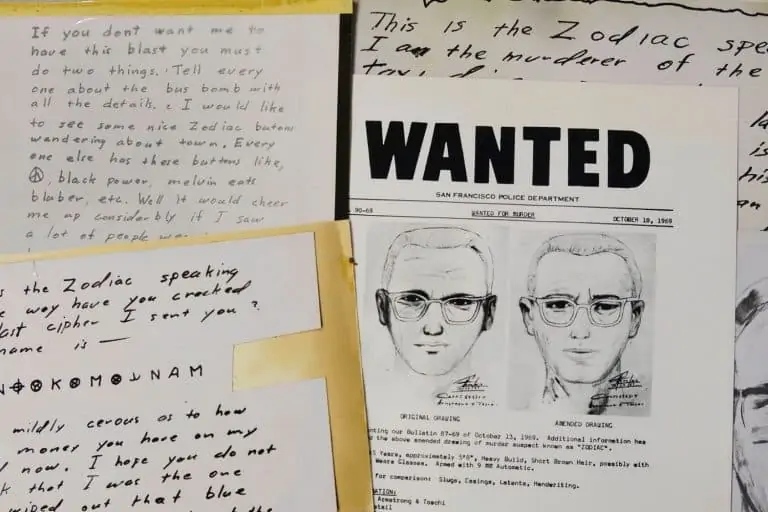 If you dont want me to
have this blast you must
do two things. Tell every
one about the bus bomb with
all the details. I would like
to see some nice Zodiac butons
wandering about town. Every
one else has these buttons like,
☮, black power, melvin eats
bluber, etc. Well it would cheer
me up considerbly if I saw
a lot of people
This is the Zodiac
I am the murderer of the
WANTED
SAN FRANCISCO POLICE DEPARTMENT
90-69 WANTED FOR MURDER OCTOBER 18, 1969
ORIGINAL DRAWING AMENDED DRAWING
our Bulletin 87-69 of October 13, 1969. Additional information has
the above amended drawing of murder suspect known as "ZODIAC".
Years, approximately 5'8", Heavy Build, Short Brown Hair, possibly with
Wears Glasses. Armed with 9 MM Automatic.
for comparison: Slugs, Casings, Latents, Handwriting.
Armstrong & Toschi
the Zodiac speaking
way have you cracked
last cipher I sent you?
name is —
N⌖⊗K⊗M⊗⅃NAM
mildly cerous as to how
money you have on my
now. I hope you do not
that I was the one
wiped out that blue